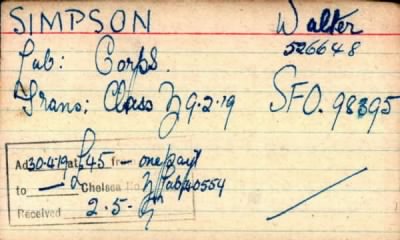 SIMPSON Walter
526648
Lab: Corps.
Trans: Class Z 9.2.19 SFO. 98395
Ad 30.4.19 at £45 fr — one payt
to — Chelsea No. Z/Lab/40554
Received 2.5.